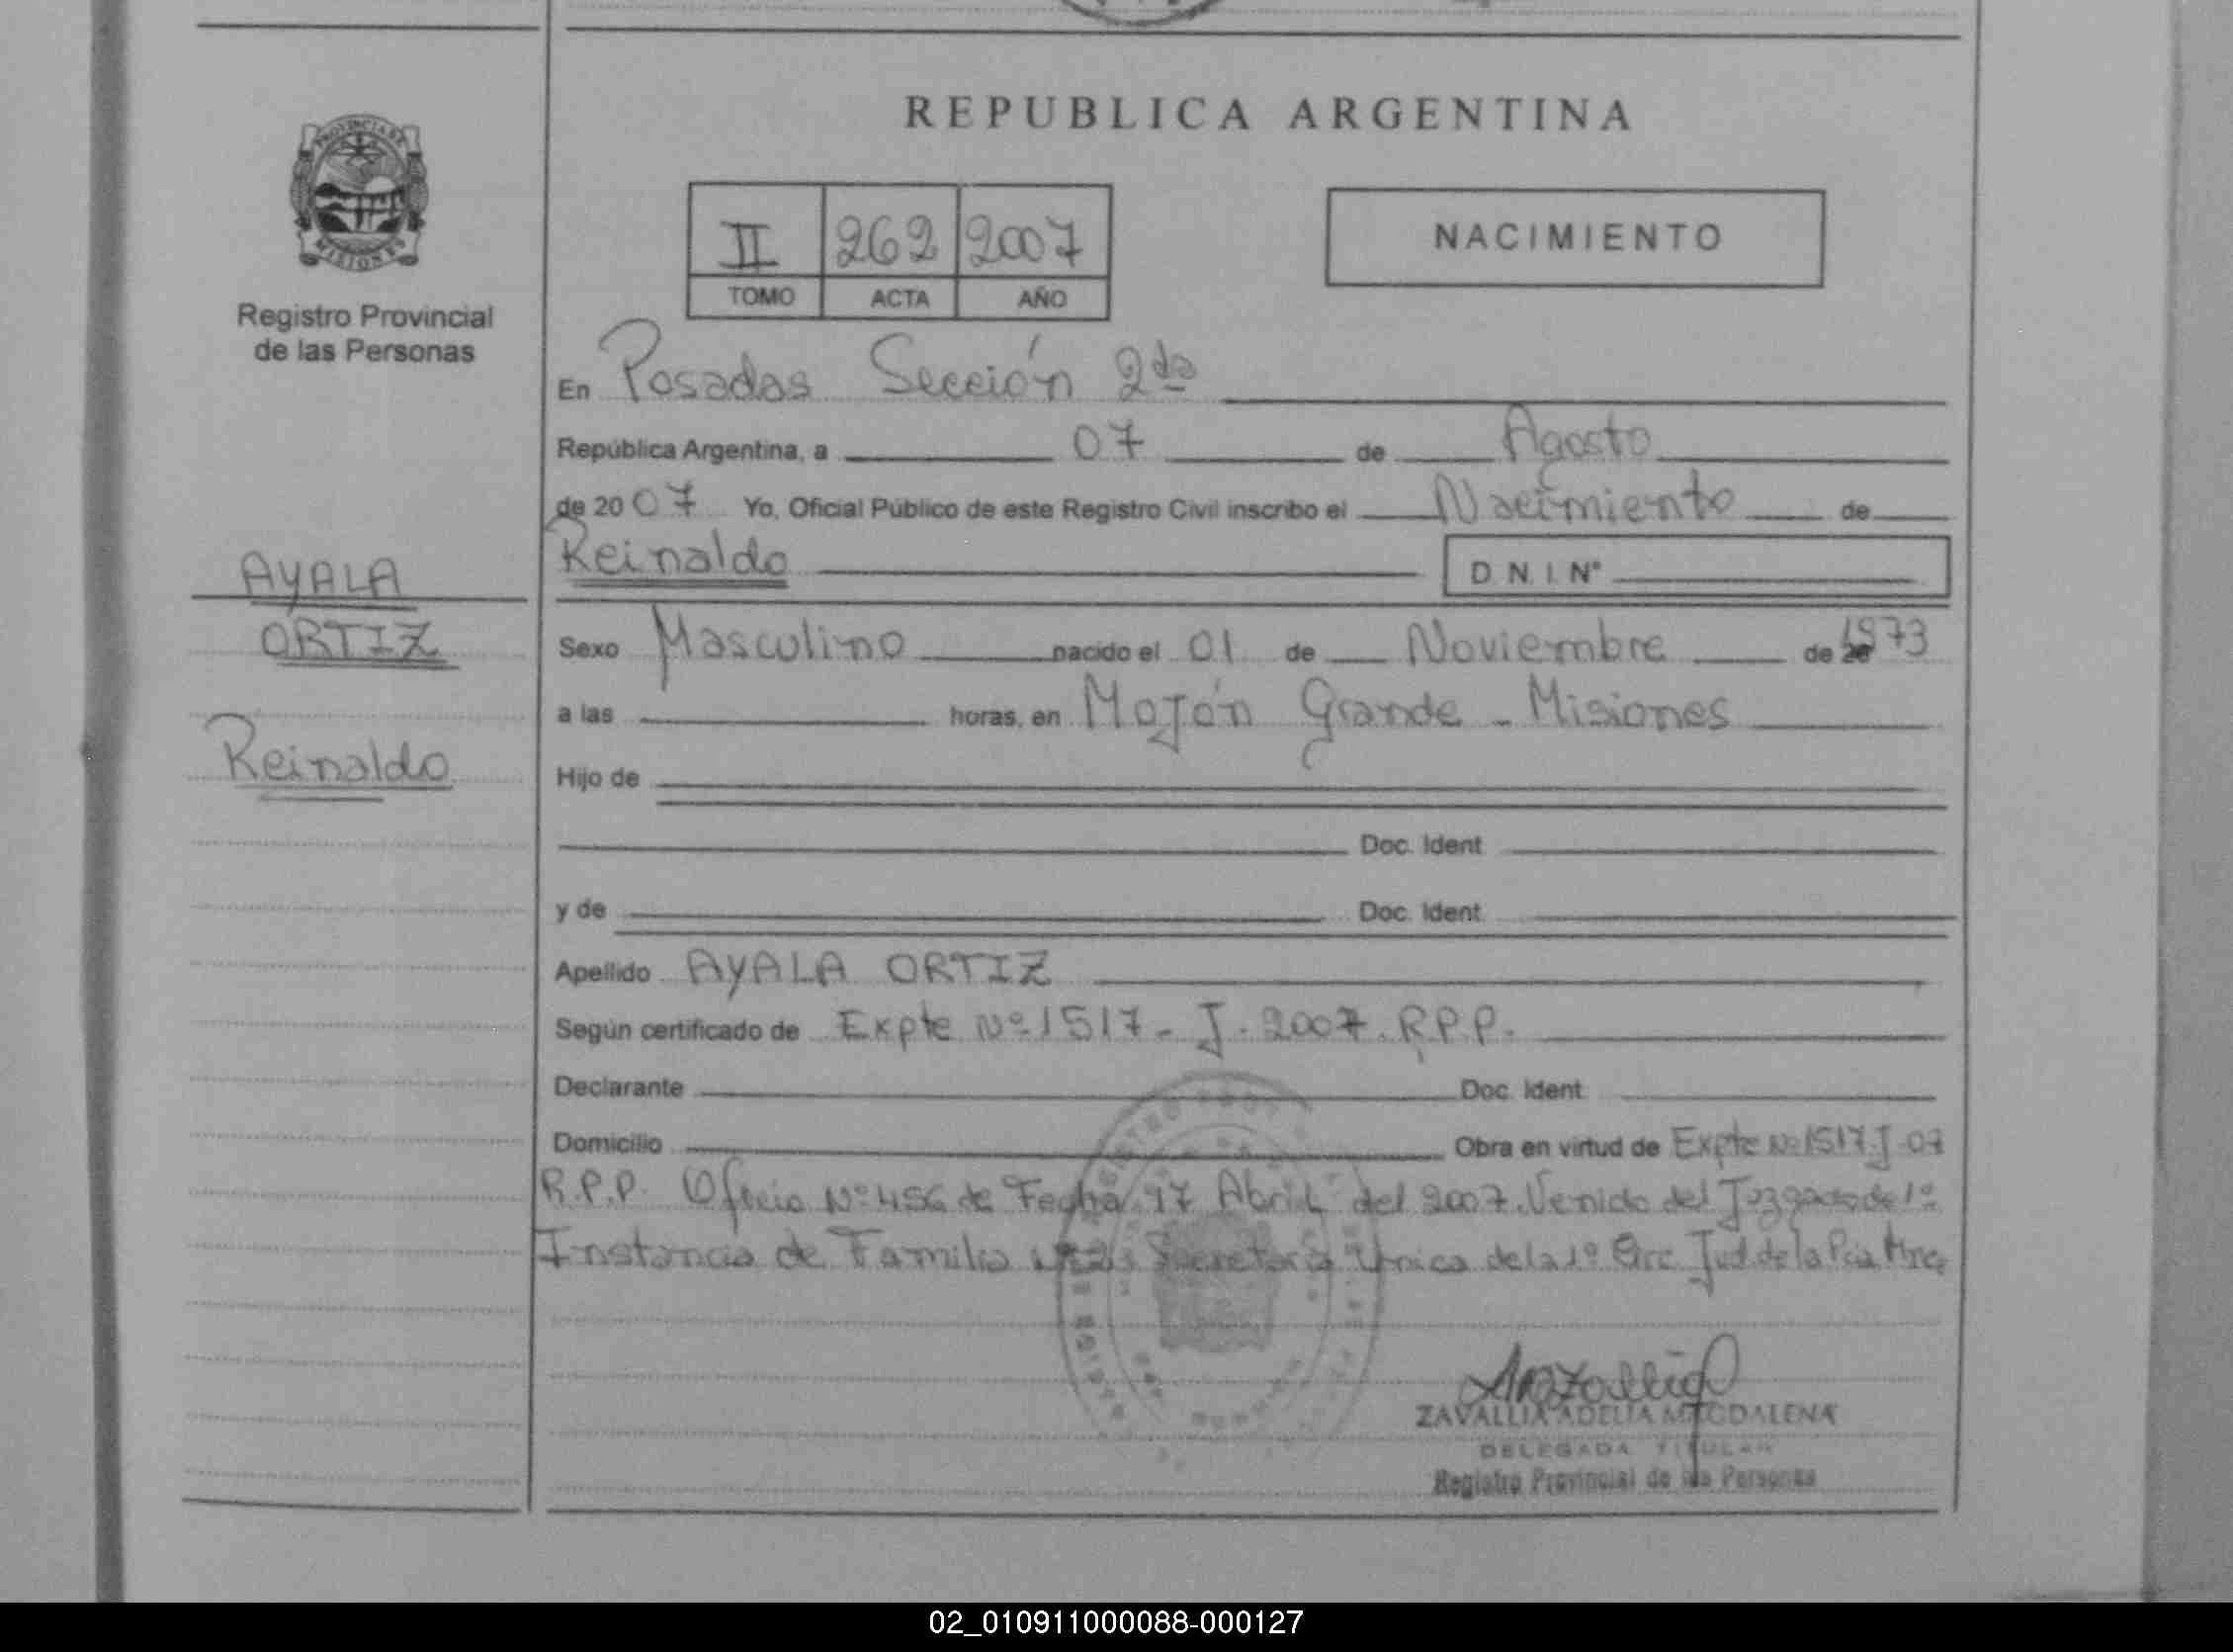 REPUBLICA ARGENTINA
PROVINCIA DE
MISIONES
Registro Provincial
de las Personas
II 262 2007
TOMO ACTA AÑO
NACIMIENTO
En Posadas Sección 2da
República Argentina, a 07 de Agosto
de 2007 Yo, Oficial Público de este Registro Civil inscribo el Nacimiento de
Reinaldo D.N.I. N°
AYALA
ORTIZ
Reinaldo
Sexo Masculino nacido el 01 de Noviembre de 1973
a las horas, en Mojón Grande - Misiones
Hijo de
Doc. Ident.
y de Doc. Ident.
Apellido AYALA ORTIZ
Según certificado de Expte Nº 1517 - J - 2007. R.P.P.
Declarante Doc. Ident.
Domicilio Obra en virtud de Expte Nº 1517-J-07
R.P.P. Oficio Nº 456 de Fecha 17 Abril del 2007. Venido del Juzgado de 1º
Instancia de Familia Secretaria Unica de la 1º Circ Jud. de la Pcia
ZAVALLIA ADELIA MAGDALENA
DELEGADA TITULAR
Registro Provincial de las Personas
02_010911000088-000127